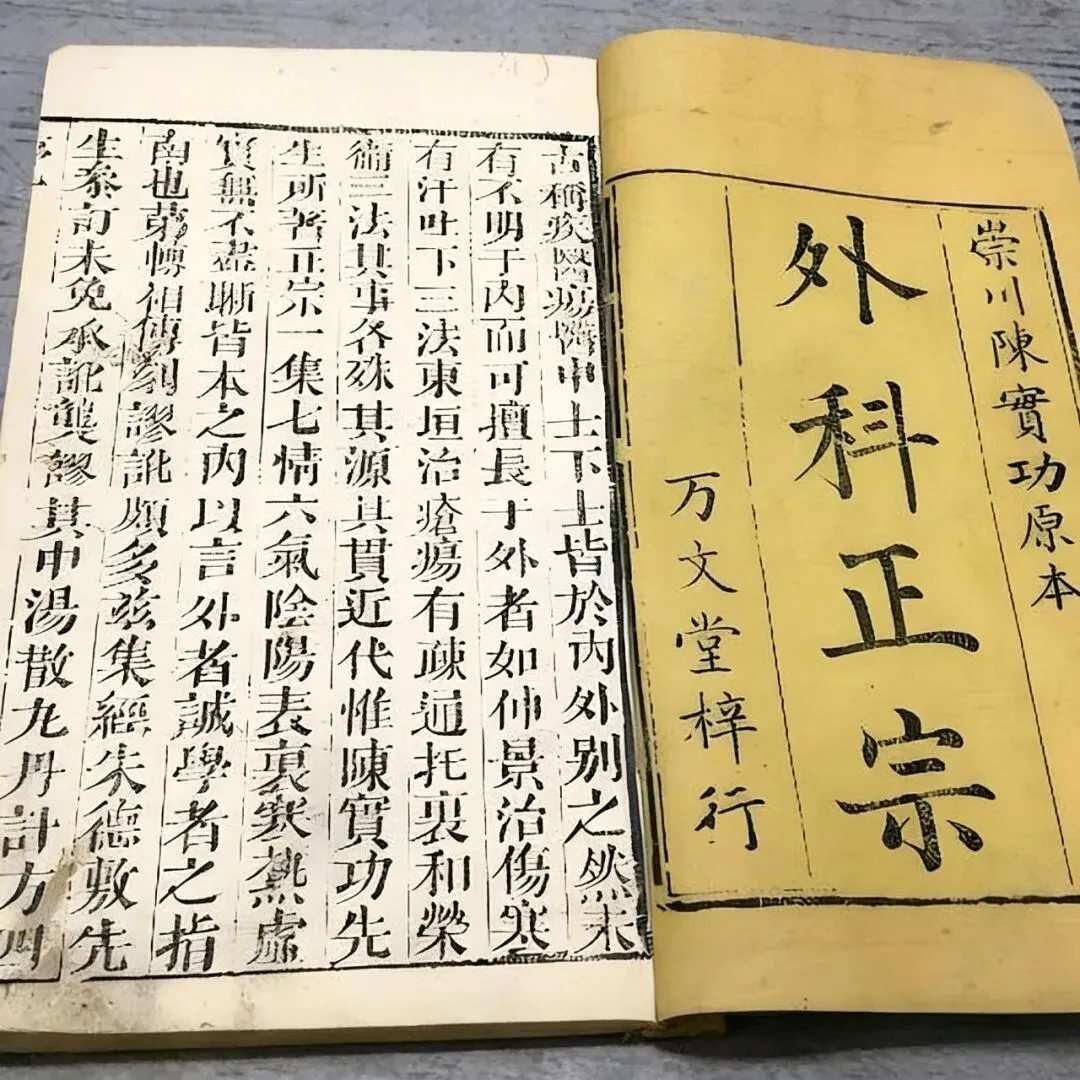 崇川陳實功原本
外科正宗
万文堂梓行
古稱疾醫瘍醫中士下士皆於內外別之然未
有不明于內而可擅長于外者如仲景治傷寒
有汗吐下三法東垣治瘡瘍有疎通托裏和榮
衛三法其事各殊其源其貫近代惟陳實功先
生所著正宗一集七情六氣陰陽表裏寒熱虛
實無不盡晰皆本之內以言外者誠學者之指
南也苐轉相傳刻謬訛頗多玆集經朱德敷先
生叅訂未免承訛襲謬其中湯散九丹計方四